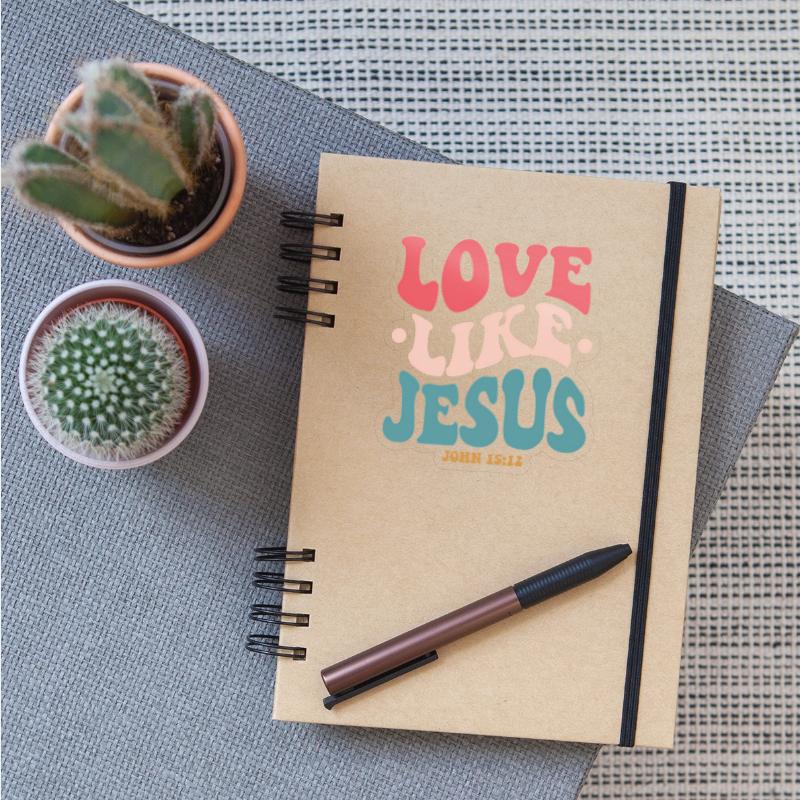 LOVE
• LIKE •
JESUS
JOHN 15:12